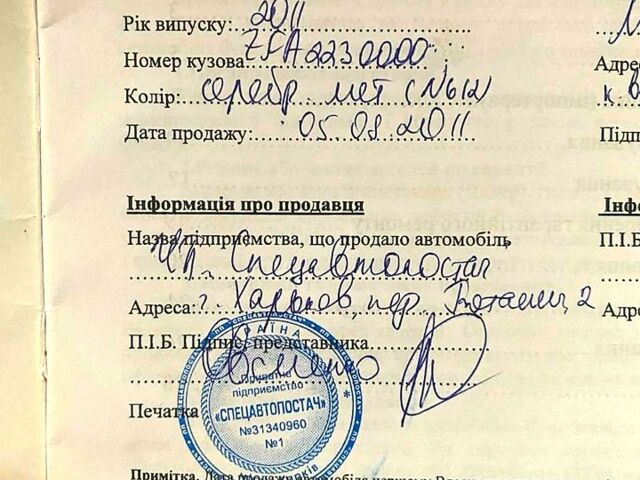 Рік випуску: 2011
Номер кузова ZFA2230000
Колір: серебр мет (N612)
Дата продажу: 05 08 2011
Інформація про продавця
Назва підприємства, що продало автомобіль
ЧП. Спецавтопостач
Адреса: г. Харьков, пер. 2
П.І.Б. Підпис, представника
Печатка
УКРАЇНА
Приватне
підприємство
«СПЕЦАВТОПОСТАЧ»
№31340960
№1
Примітка. Дата продажу автомобіля першому
Адрес
к. В
Підп
Інфо
П.І.Б
Адре